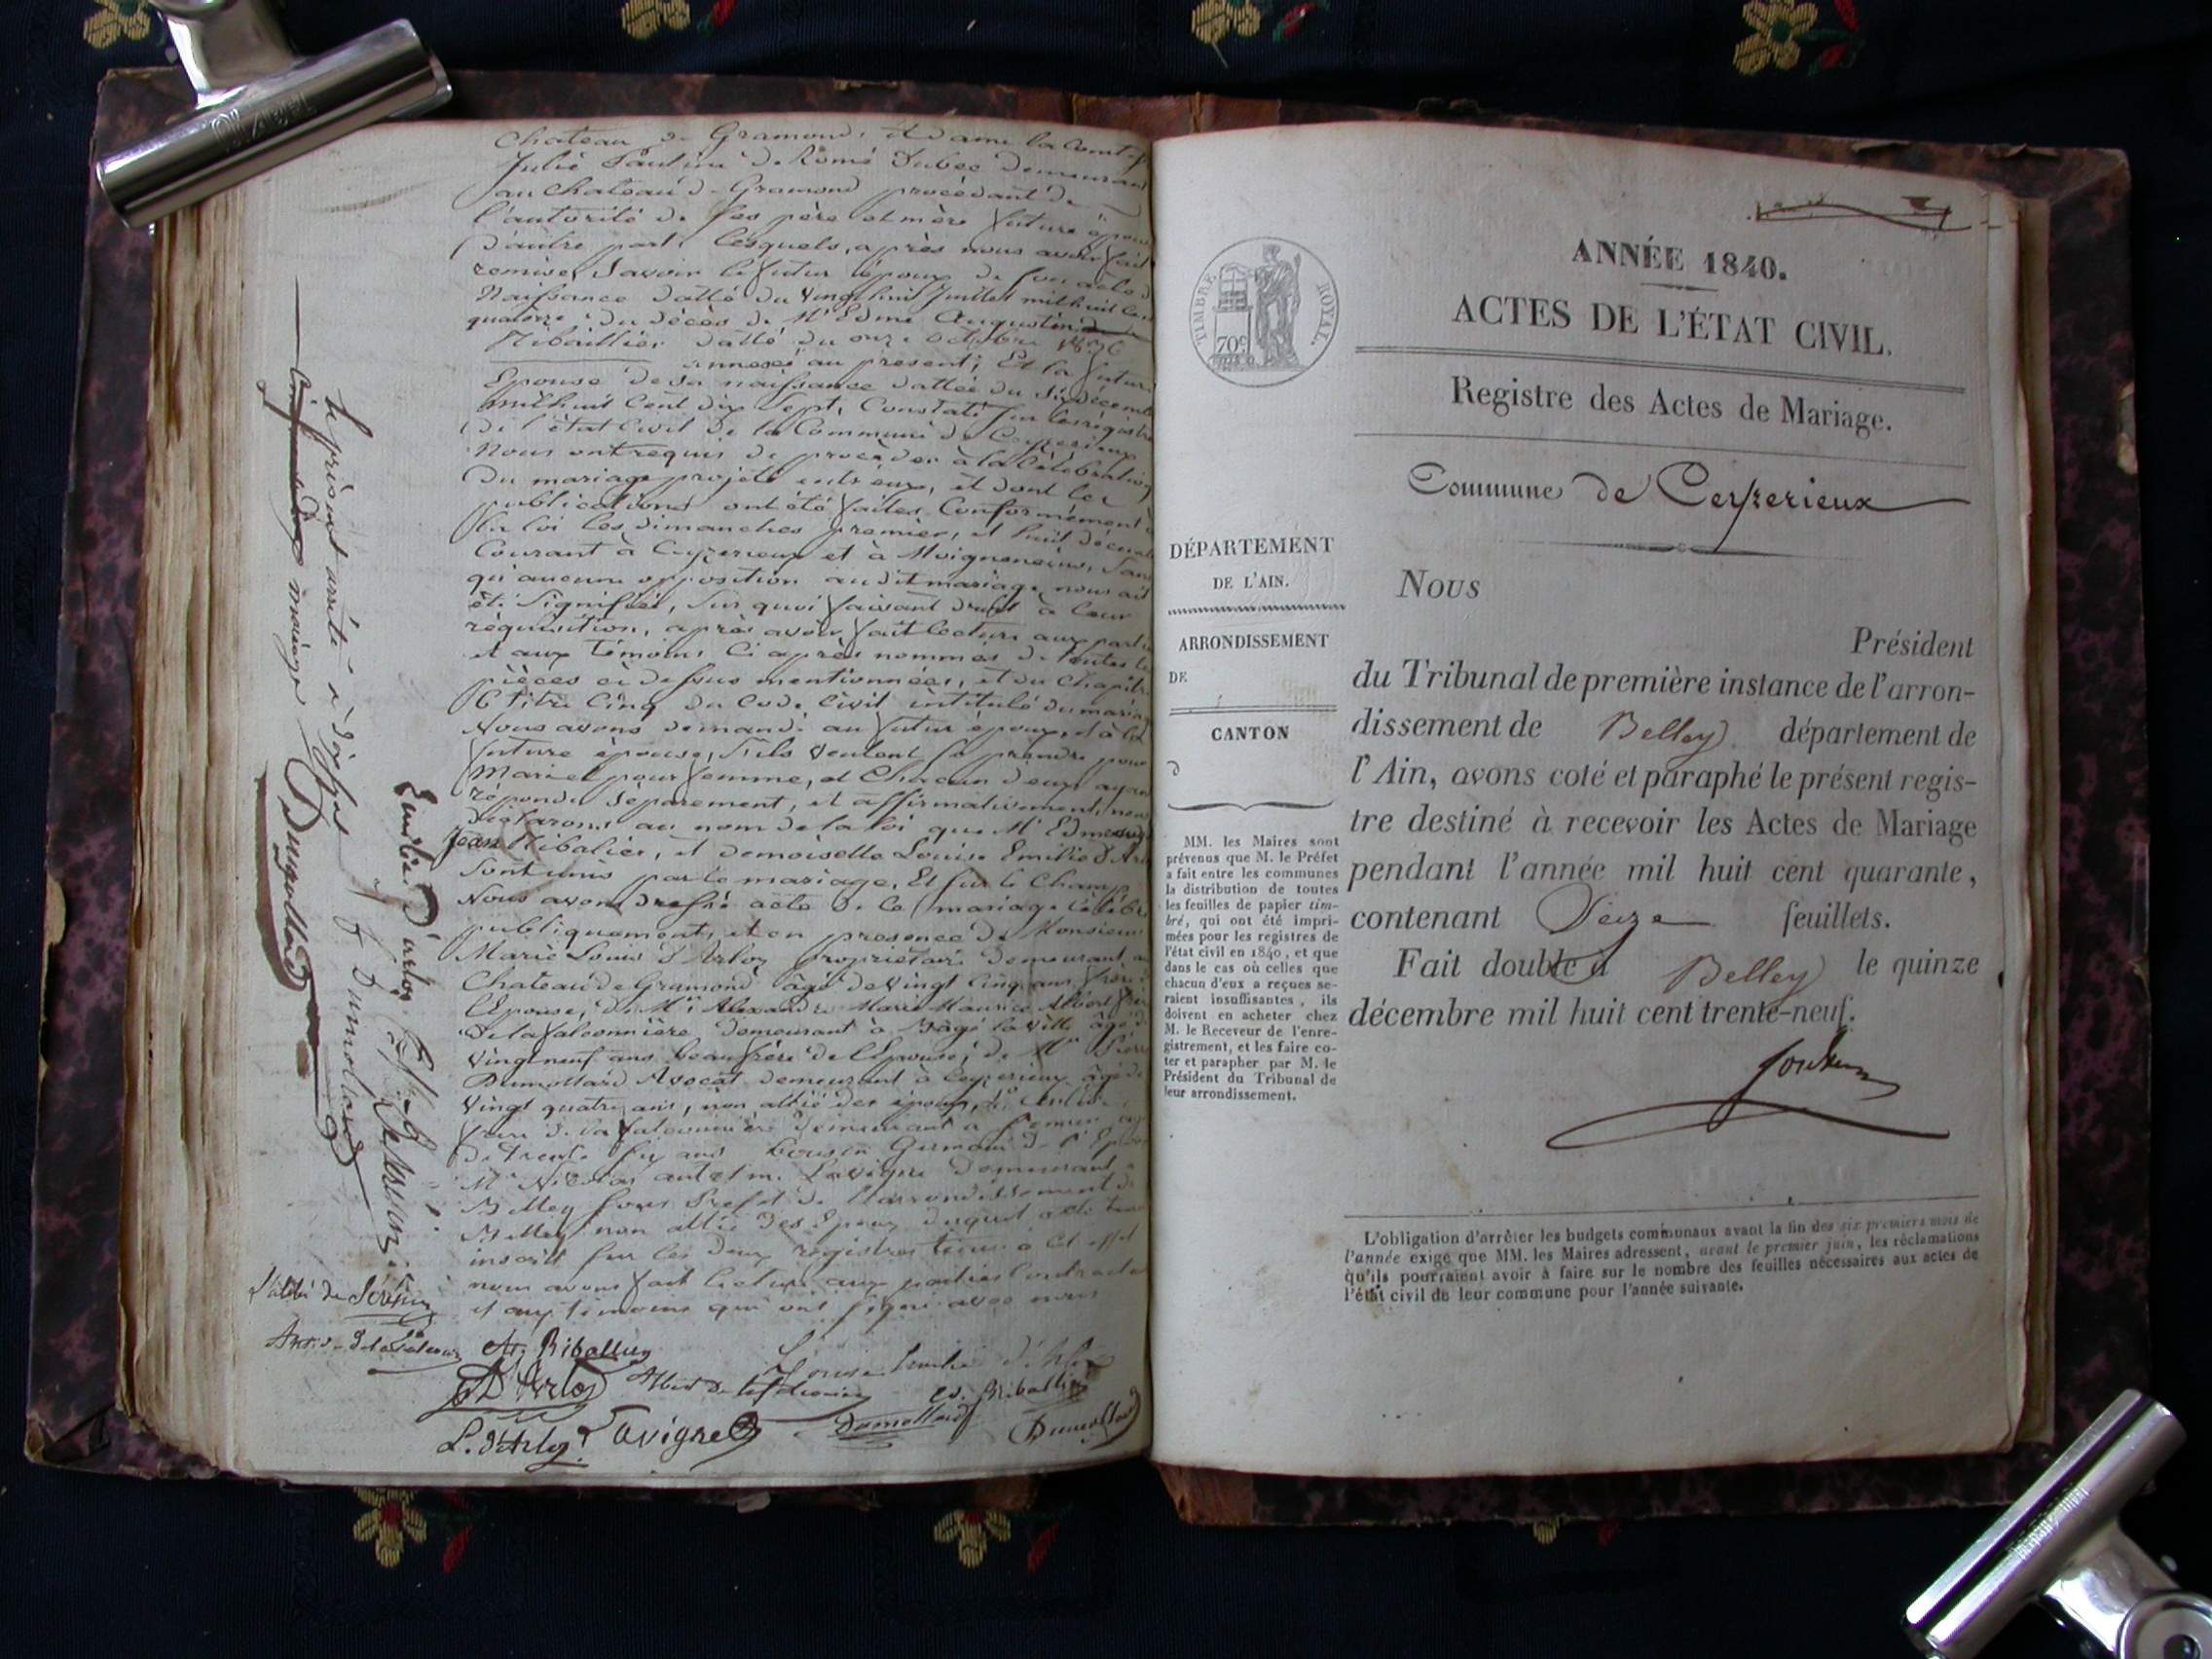 Chateau de Gramond, et dame la
Julie Pauline de Romé Dubec demeurant
au Chateau de Gramond procédant de
l'autorité de ses père et mère future
d'autre part. Lesquels, après nous avoir fait
remise, Savoir le futur époux de son acte
Naissance datté du vingt huit Juillet mil huit
quatorze, du décès de Mr Edme Augustin
Ribaillier datté du onze octobre
annexé au present; Et la future
Epouse de sa naissance dattée du Six décembre
mil huit Cent dix Sept, Constaté sur les registres
de l'état Civil de la Commune de Ceyzerieux
Nous ont requis de procéder à la Célébration
Du mariage projeté entr'eux, et dont les
publications ont été faites Conformément à
la loi les dimanches premier, et huit décembre
Courant à Ceyzerieux et à Moigneneins, Sans
qu'aucune opposition audit mariage nous ait
été Signifiée, Sur quoi faisant droit à leur
réquisition, après avoir fait lecture aux parties
et aux témoins Ci après nommés de toutes les
pièces ci dessus mentionnées, et du Chapitre
6 titre Cinq du Code Civil intitulé du mariage
Nous avons demandé au futur époux, et à la
future épouse, S'ils veulent se prendre pour
Mari et pour femme, et Chacun d'eux ayant
répondu Séparement, et affirmativement, nous
déclarons au nom de la loi que Mr Edme
Jean Ribalier, et demoiselle Louise Emilie d'Arloz
Sont unis par le mariage, Et sur le Champ
Nous avons dressé acte de Ce mariage Célébré
publiquement, et en presence de Monsieur
Marie Louis d'Arloz propriétaire demeurant au
Chateau de Gramond âgé de Vingt Cinq ans frère
l'Epouse, de Mr Alexandre Marie Maurice Albert
De la falconnière demeurant à Bagé la Ville âgé de
Vingt neuf ans beaufrère de l'Epouse, de Mr Pierre
Dumollard Avocat demeurant à Ceyzerieux âgé de
Vingt quatre ans, non allié des époux,
de la falconnière demeurant à
De trente six ans Cousin Germain de l'Epouse
Mr Nicolas antelme Lavigne demeurant à
Belley Sous Prefet de l'arrondissement de
Belley non allié des Epoux duquel acte
inscrit sur les deux registres tenus à Cet effet
nous avons fait lecture aux parties Contractantes
et aux témoins qui ont signé avec nous
Riballier
Louise Emilie d'Arloz
D'Arloz
Albert de la falconnière
ed. Riballier
L. d'Arloz
Lavigne
Dumollard
Dumollard
Emilie d'arloz
Le présent arrêté à
mariage
Dumollard
ANNÉE 1840.
ACTES DE L'ÉTAT CIVIL.
Registre des Actes de Mariage.
Commune de Ceyzerieux
TIMBRE ROYAL.
70c
DÉPARTEMENT
DE L'AIN.
ARRONDISSEMENT
DE
CANTON
d
MM. les Maires sont
prévenus que M. le Préfet
a fait entre les communes
la distribution de toutes
les feuilles de papier tim-
bré, qui ont été impri-
mées pour les registres de
l'état civil en 1840, et que
dans le cas où celles que
chacun d'eux a reçues se-
raient insuffisantes, ils
doivent en acheter chez
M. le Receveur de l'enre-
gistrement, et les faire co-
ter et parapher par M. le
Président du Tribunal de
leur arrondissement.
Nous
Président
du Tribunal de première instance de l'arron-
dissement de Belley département de
l'Ain, avons coté et paraphé le présent regis-
tre destiné à recevoir les Actes de Mariage
pendant l'année mil huit cent quarante,
contenant Seize feuillets.
Fait double à Belley le quinze
décembre mil huit cent trente-neuf.
L'obligation d'arrêter les budgets communaux avant la fin des six premiers mois de
l'année exige que MM. les Maires adressent, avant le premier juin, les réclamations
qu'ils pourraient avoir à faire sur le nombre des feuilles nécessaires aux actes de
l'état civil de leur commune pour l'année suivante.